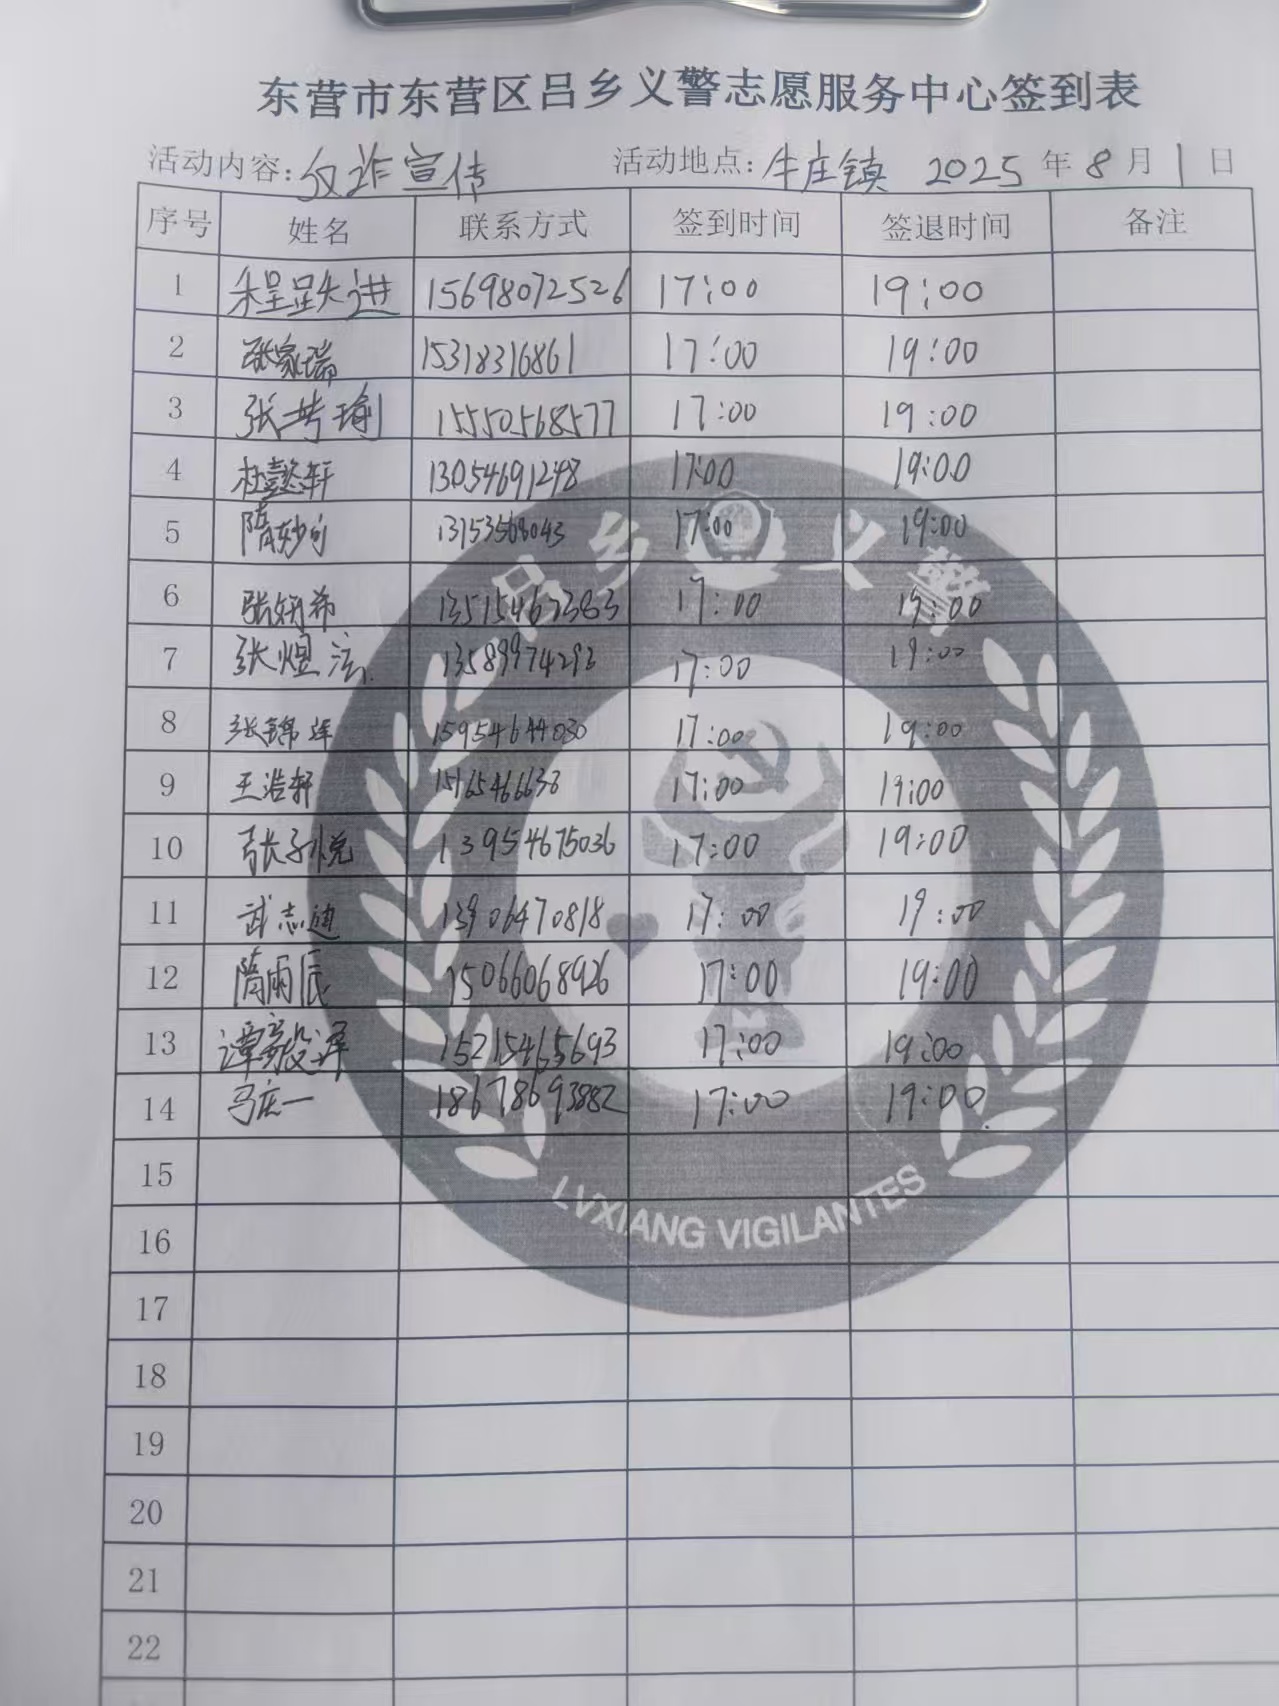 东营市东营区吕乡义警志愿服务中心签到表
活动内容:反诈宣传 活动地点:牛庄镇 2025年8月1日
序号 姓名 联系方式 签到时间 签退时间 备注
1 15698072526 17:00 19:00
2 张家瑞 15318316861 17:00 19:00
3 张芸瑜 15550568577 17:00 19:00
4 杜懿轩 13054691248 17:00 19:00
5 隋妙可 13153568043 17:00 19:00
6 张妍希 13515467383 17:00 19:00
7 张煜 13589974293 17:00 19:00
8 张锦泽 15954644030 17:00 19:00
9 王浩轩 15165466638 17:00 19:00
10 张子悦 13954675036 17:00 19:00
11 武志迪 13906470818 17:00 19:00
12 隋雨辰 15066068926 17:00 19:00
13 谭毅泽 15215465693 17:00 19:00
14 马庆一 18678693882 17:00 19:00
15
16
17
18
19
20
21
22
吕乡义警
LVXIANG VIGILANTES